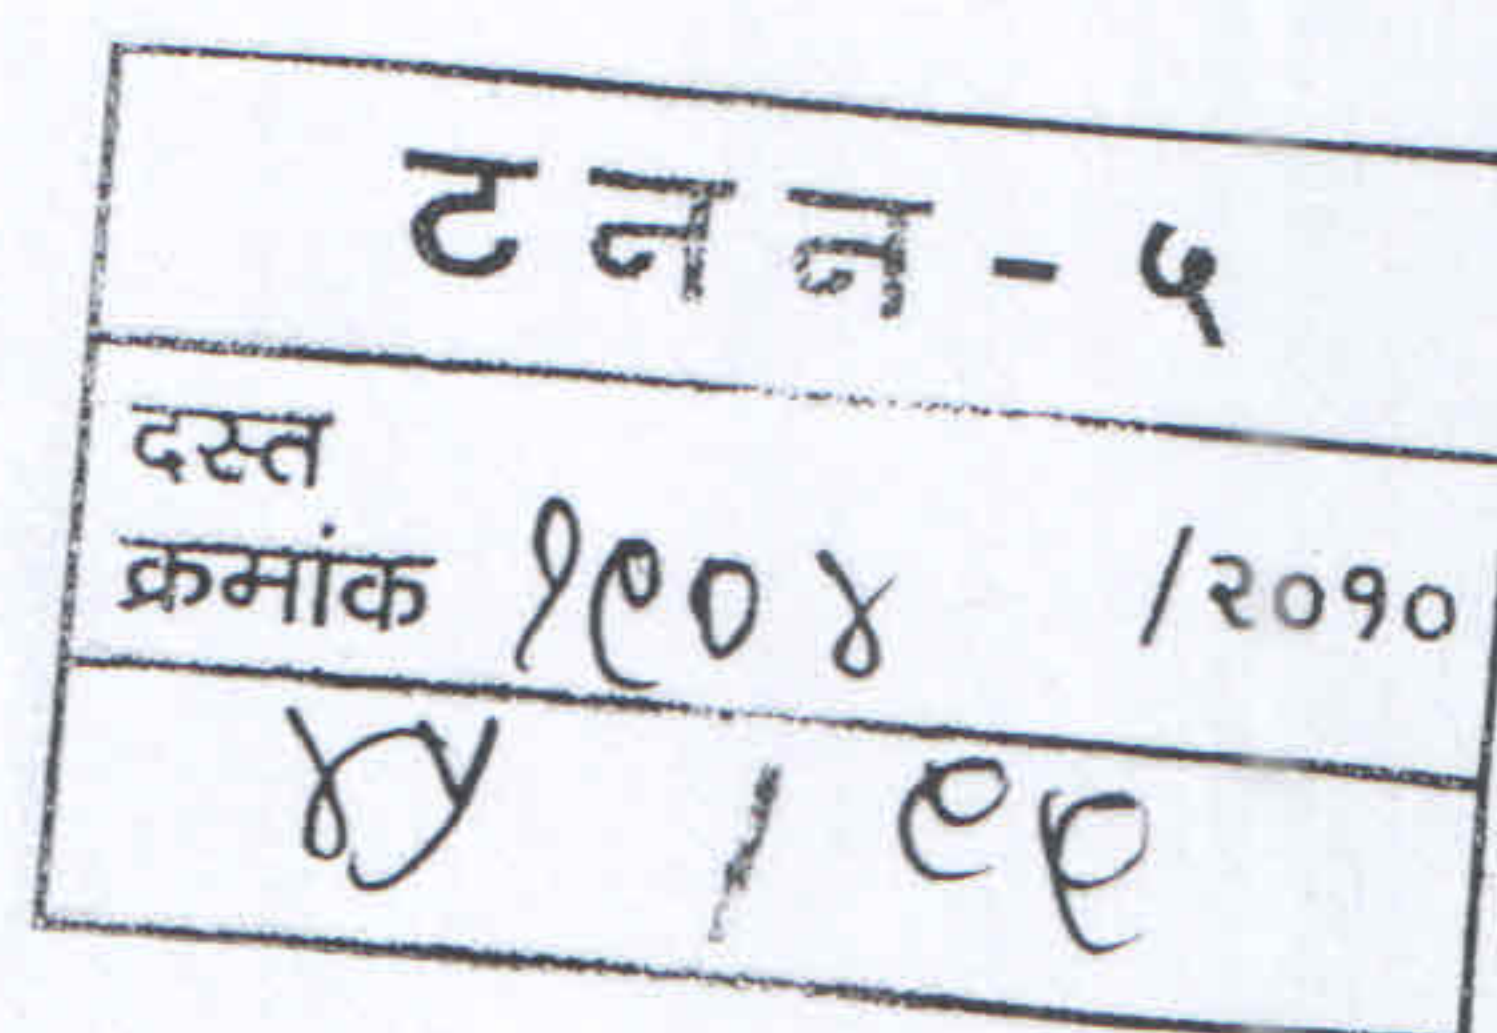 ट न न - ५
दस्त
क्रमांक १९०४ /२०१०
४४ / ९९